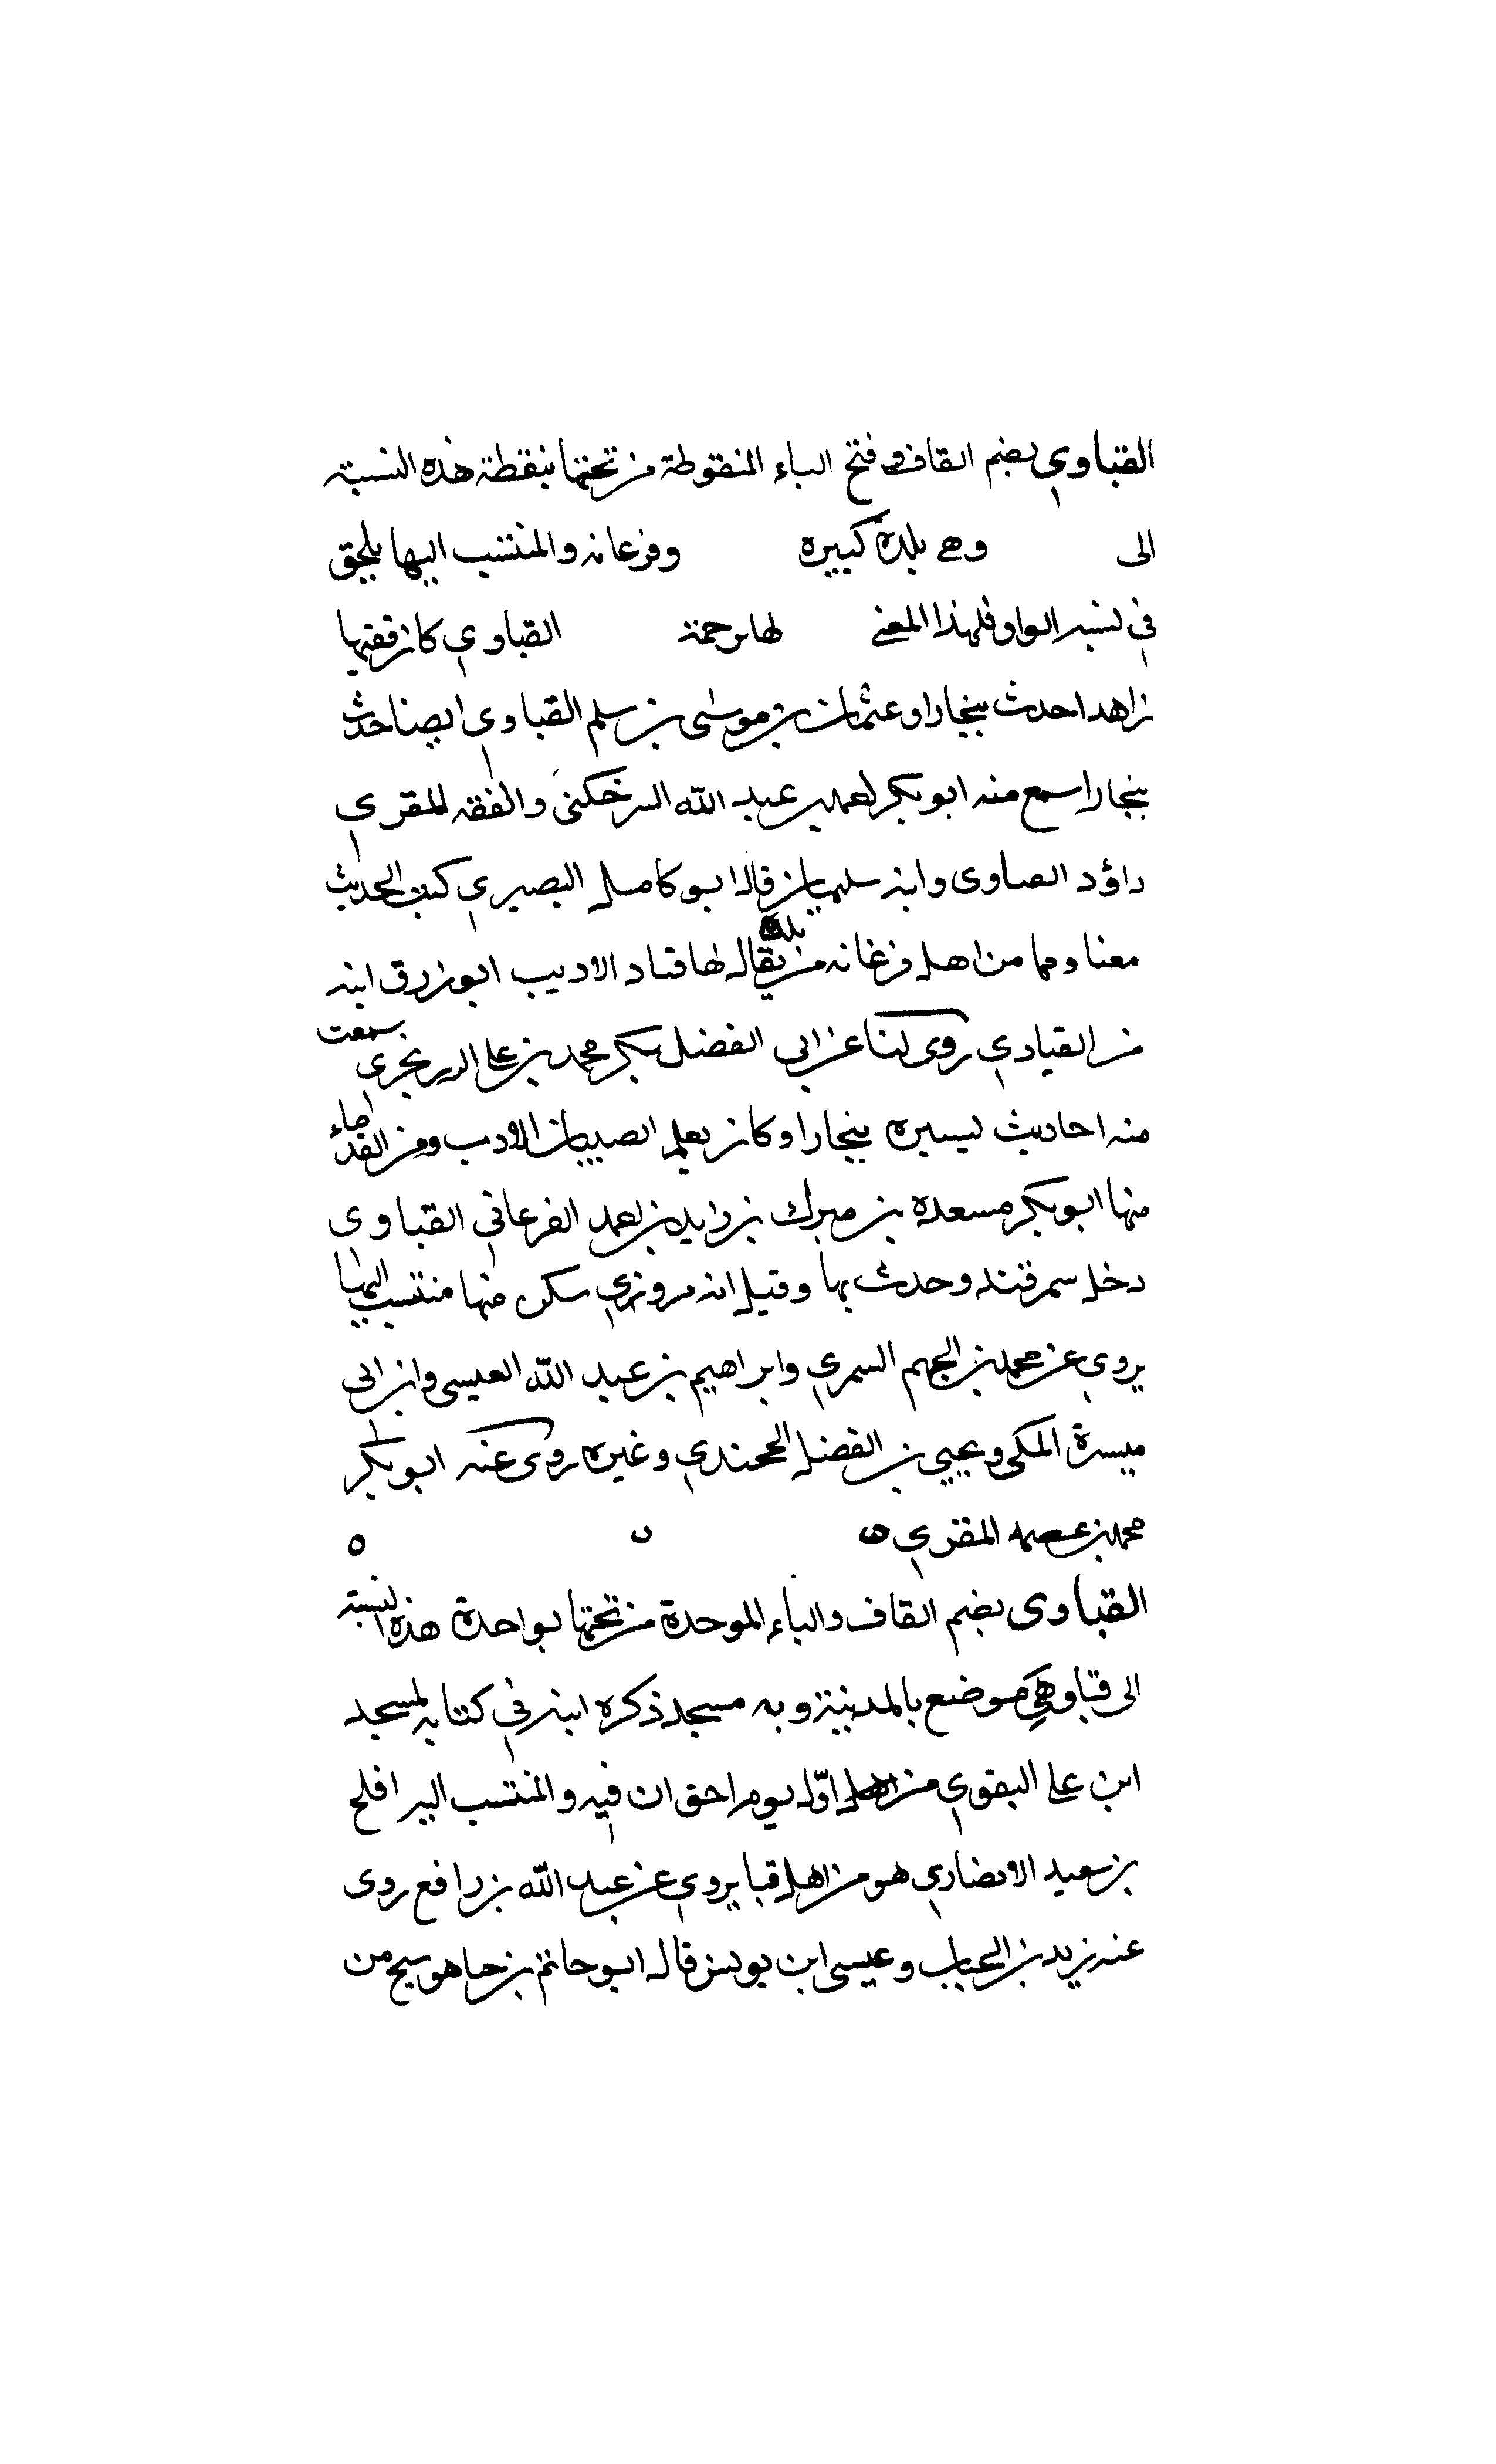 القباوي بضم القاف وفتح الباء المنقوطة من تحتها بنقطة هذه النسبة
الى وهي بلدة كبيره وفرعانه والمنتسب اليها يلحق
في نسبه الواو فلهذا المعنى لها رحمة القباوي كان فقيها
زاهدا حدث ببخارا وعثمان بن موسى بن سلم القباوي ايضا حدث
ببخارا سمع منه ابو بكر احمد بن عبد الله السرخكتي والفقه المقري
داؤد الصاوى وابنه سليمان قال ابو كامل البصيري كتب الحديث
معنا وهما من اهل فرغانه من بلدة يقال لها قباد الاديب ابو زرق ابنه
من القيادي روى لنا عن ابي الفضل بكر محمد بن على الدرنجرى سمعت
منه احاديث ليسيره ببخارا وكان يعلم الصبيان الادب ومن القدماء
منها ابو بكر مسعدة بن مبرك بن رايد بن احمد الفرعاني القباوى
دخل سمرقند وحدث بها وقيل انه مروزي سكن منها منتسب اليها
يروي عن محمد بن الجهم السمري وابراهيم بن عبد الله العيسى وابن ابى
ميسرة المكى ويحيى بن الفضل الححندي وغيره روى عنه ابو بكر
محمد بن عصمه المقري ه ں ه
القباوى بضم القاف والباء الموحدة من تحتها بواحدة هذه النسبة
الى قبا وهي موضع بالمدينة وبه مسجد ذكره ابنه في كتابه لمسجد
ابن على البقوي من اهل اوّل يوم احق ان فيه والمنتسب اليه افلح
بن سعيد الانصاري هو من اهل قبا يروي عن عبد الله بن رافع روى
عنه زيد بن الحباب وعيسى ابن يونس قال ابو حاتم بن حبا هو شيخ من